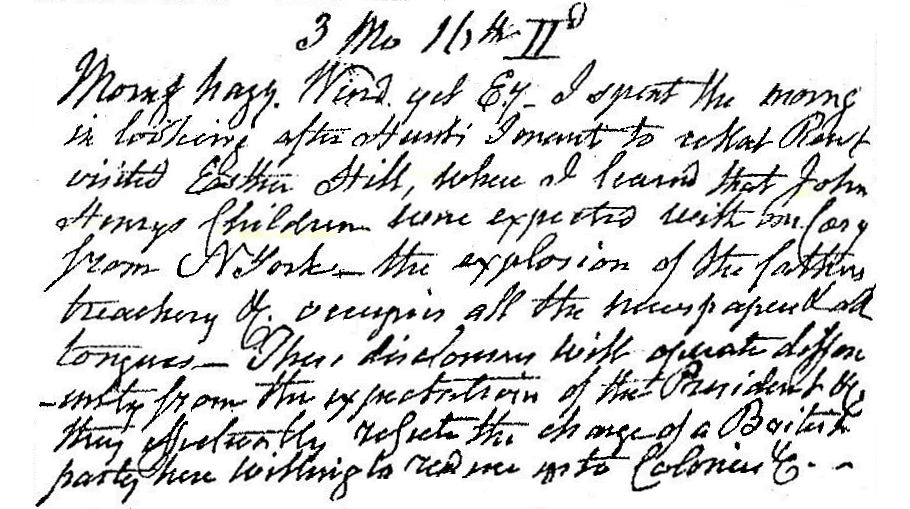 3 Mo 16th II d
Morng hazy. Wind yet Ey - I spent the morng
in looking after Hunti I meant to what
visited Esther Hill, where I learnd that John
Henrys Children were expected with
from N York - the explosion of the fathers
treachery &c. occupies all the newspapers & all
tongues - These disclosures will operate differ
-ently from the expectation of the President &c.
they effectually refute the charge of a British
party here willing to reduce us to Colonies &c. -